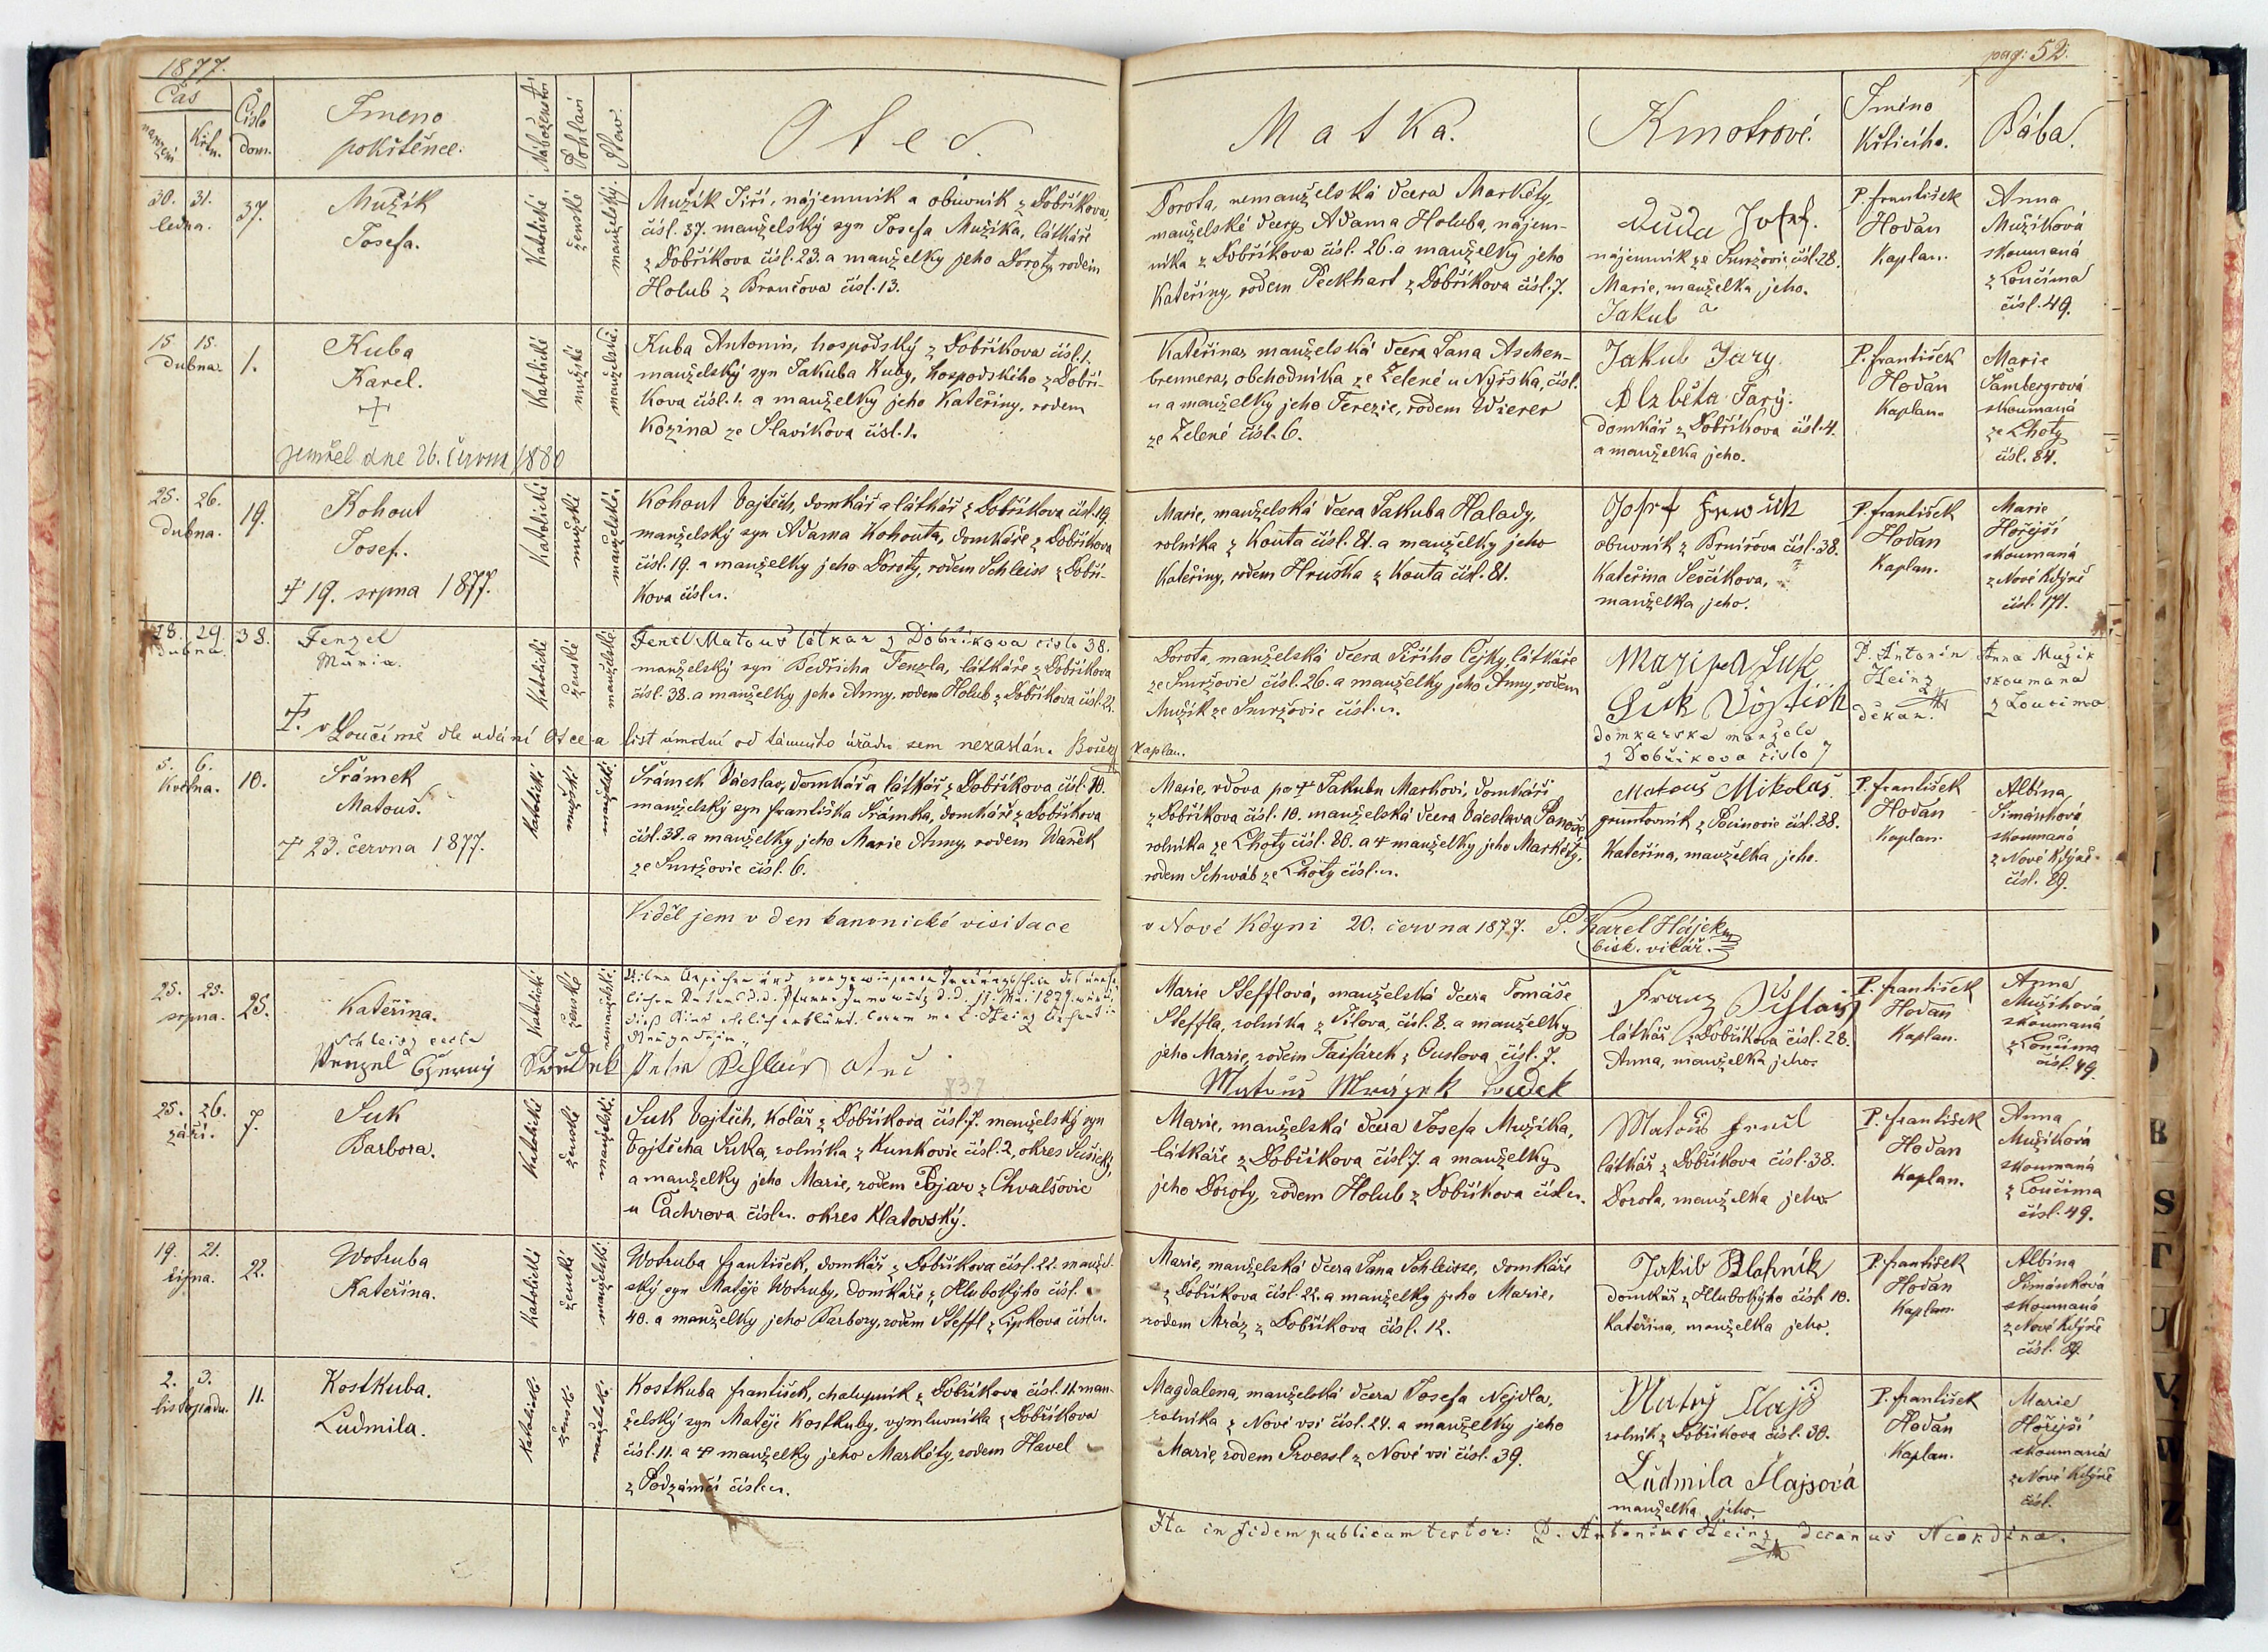 1877.
pag: 52.
Čas
narození
Křtu.
Číslo
dom.
Jmeno
pokřtěnce.
Náboženství
Pohlaví
Stav.
Otec.
Matka.
Kmotrové.
Jméno
Křticího.
Bába.
30. 31.
ledna.
37.
Mužík
Josefa.
Katolické
ženské
manželský.
Mužík Jiří, nájemník a obuvník z Dobříkova,
čísl. 37. manželský syn Josefa Mužíka, látkáře
z Dobříkova čísl. 23. a manželky jeho Doroty, rodem
Holub z Brančova čísl. 13.
Dorota, nemanželská dcera Markéty,
manželské dcery Adama Holuba, nájem-
níka z Dobříkova čísl. 26. a manželky jeho
Kateřiny, rodem Peckhart z Dobříkova čísl. 7.
Duda Josef.
nájemník ze Smržovic čísl. 28.
Marie, manželka jeho.
Jakub
P. František
Hodan
Kaplan.
Anna
Mužíková
skoumaná
z Loučima
čísl. 49.
15. 15.
dubna.
1.
Kuba
Karel.
zemřel dne 26. června 1880
Katolické
mužské
manželské.
Kuba Antonín, hospodský z Dobříkova čísl. 1.
manželský syn Jakuba Kuby, hospodského z Dobří-
kova čísl. 1. a manželky jeho Kateřiny, rodem
Kozina ze Slavíkova čísl. 1.
Kateřina, manželská dcera Jana Aschen-
brennera, obchodníka ze Zelené u Nýrska, čísl.
u a manželky jeho Terezie, rodem Wierer
ze Zelené čísl. 6.
Jakub Jarý
Alzběta Jarý.
domkář z Dobříkova čísl. 4.
a manželka jeho.
P. František
Hodan
Kaplan.
Marie
Šambergrová
skoumaná
ze Lhoty
čísl. 84.
25. 26.
dubna.
19.
Kohout
Josef.
† 19. srpna 1877.
Katolické
mužské
manželské.
Kohout Vojtěch, domkář a látkář z Dobříkova čísl. 19.
manželský syn Adama Kohouta, domkáře z Dobříkova
čísl. 19. a manželky jeho Doroty, rodem Schleiss z Dobří-
kova čísl. u.
Marie, manželská dcera Jakuba Halady,
rolníka z Kouta čísl. 81. a manželky jeho
Kateřiny, rodem Hruška z Kouta čísl. 81.
Josef
obuvník z Brnířova čísl. 38.
Kateřina Ševčíkova,
manželka jeho.
P. František
Hodan
Kaplan.
Marie
Hořejší
skoumaná
z Nové Kdýně
čísl. 171.
28. 29.
dubna.
38.
Fenzel
Maria.
Katolické
ženské
manželské.
Fencl Matouš látkar z Dobříkova cislo 38.
manželský syn Bedřicha Fenzla, látkáře z Dobříkova
čísl. 38. a manželky jeho Anny, rodem Holub z Dobříkova čísl. 22.
†. v Loučimě dle udání Otce a list úmrtní od támního úřadu sem nezaslán. Boček
Kaplan.
Dorota, manželská dcera Jiřího Čejky, látkáře
ze Smržovic čísl. 26. a manželky jeho Anny, rodem
Mužík ze Smržovic čísl. u.
Marija Suk
Suk Vojtěch
domkarske manzele
z Dobřikova čislo 7
P. Antonín
Heinz
děkan.
Anna Muzik
skoumana
z Loucima
5. 6.
Května.
10.
Šrámek
Matouš.
† 23. června 1877.
Katolické
mužské
manželské.
Šrámek Václav, domkář a látkář z Dobříkova čísl. 10.
manželský syn Františka Šrámka, domkáře z Dobříkova
čísl. 38. a manželky jeho Marie Anny, rodem Waněk
ze Smržovic čísl. 6.
Marie, vdova po † Jakubu Markovi, domkáři
z Dobříkova čísl. 10. manželská dcera Václava Janoše,
rolníka ze Lhoty čísl. 80. a † manželky jeho Markéty,
rodem Schwáb ze Lhoty čísl. u.
Matouš Mikolaš.
gruntovník z Pocinovic čísl. 38.
Kateřina, manželka jeho.
P. František
Hodan
Kaplan.
Albína
Šimánková
skoumaná
z Nové Kdýně
čísl. 89.
Viděl jsem v den kanonické visitace
v Nové Kdyni 20. června 1877. P. Karel Hájek
bisk. vikář.
25. 25.
srpna.
25.
Kateřina.
Schleisz recte
Venzel Czerný Svědek
Katolické
ženské
nemanželské.
Petr Pišlaur otec
Marie Stefflová, manželská dcera Tomáše
Steffla, rolníka z Filova, čísl. 8. a manželky
jeho Marie, rodem Taifárek z Ouslova čísl. 7.
Matouš Mrázek svedek
Franz
látkář z Dobříkova čísl. 28.
Anna, manželka jeho.
P. František
Hodan
Kaplan.
Anna
Mužíková
skoumaná
z Loučima
čísl. 49.
25. 26.
září.
7.
Suk
Barbora.
Katolické
ženské
manželské.
Suk Vojtěch, kolář z Dobříkova čísl. 7. manželský syn
Vojtěcha Suka, rolníka z Kunkovic čísl. 2, okres Sušický,
a manželky jeho Marie, rodem Pojar z Chvalšovic
u Čachrova čísl. u. okres Klatovský.
Marie, manželská dcera Josefa Mužíka,
látkáře z Dobříkova čísl. 7. a manželky
jeho Doroty, rodem Holub z Dobříkova čísl. u.
Matouš Fencl
látkář z Dobříkova čísl. 38.
Dorota, manželka jeho.
P. František
Hodan
Kaplan.
Anna
Mužíková
skoumaná
z Loučima
čísl. 49.
19. 21.
října.
22.
Wotruba
Kateřina.
Katolické
ženské
manželské.
Wotruba František, domkář z Dobříkova čísl. 22. manžel-
ský syn Matěje Wotruby, domkáře z Hlubokýho čísl.
40. a manželky jeho Barbory, rodem Steffl z Lipkova čísl. u.
Marie, manželská dcera Jana Schleisse, domkáře
z Dobříkova čísl. 22. a manželky jeho Marie,
rodem Mráz z Dobříkova čísl. 12.
Jakub Blahník
domkář z Hlubokýho čísl. 10.
Kateřina, manželka jeho.
P. František
Hodan
Kaplan.
Albína
Šimánková
skoumaná
z Nové Kdýně
čísl. 89.
2. 3.
listopadu.
11.
Kostkuba.
Ludmila.
Katolické
ženské
manželské.
Kostkuba František, chalupník z Dobříkova čísl. 11. man-
želský syn Matěje Kostkuby, výmluvníka z Dobříkova
čísl. 11. a † manželky jeho Markéty, rodem Havel
z Podzámčí čísl. u.
Magdalena, manželská dcera Josefa Nejdla,
rolníka z Nové vsi čísl. 24. a manželky jeho
Marie, rodem Groessl z Nové vsi čísl. 39.
Matěj Hajs
rolník z Dobříkova čísl. 30.
Ludmila Hajsová
manželka jeho.
P. František
Hodan
Kaplan.
Marie
Hořejší
skoumaná
z Nové Kdýně
čísl.
Ita in fidem publicam testor: P. Antonius Heinz decanus Neokdina.